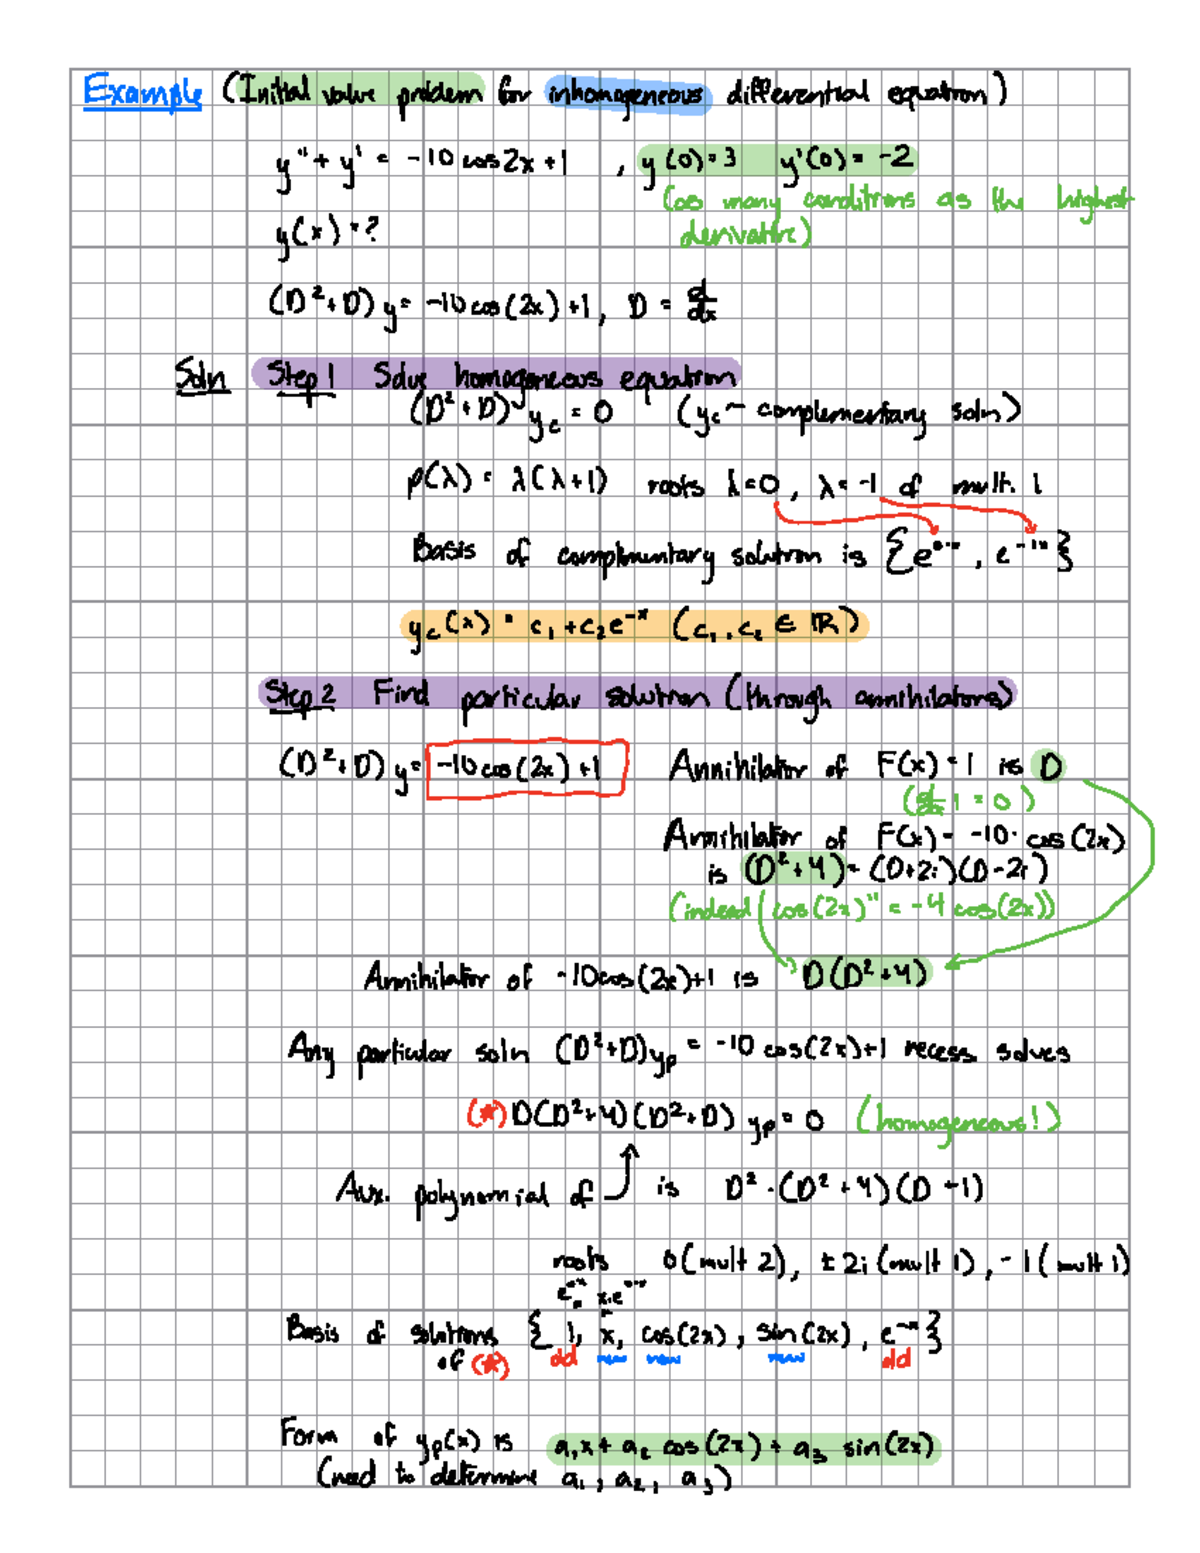 Example (Initial value problem for inhomogeneous differential equation)
y'' + y' = -10 cos 2x + 1 , y(0) = 3 y'(0) = -2
(as many conditions as the highest
derivative)
y(x) = ?
(D² + D) y = -10 cos(2x) + 1, D = d/dx
Soln Step 1 Solve homogeneous equation
(D² + D) y_c = 0 (y_c ~ complementary soln)
p(λ) = λ(λ+1) roots λ=0, λ=-1 of mult. 1
Basis of complimentary solution is {e^{0·x}, e^{-1x}}
y_c(x) = c₁ + c₂e^{-x} (c₁, c₂ ∈ ℝ)
Step 2 Find particular solution (through annihilators)
(D² + D) y = -10 cos(2x) + 1 Annihilator of F(x) = 1 is D
(d/dx 1 = 0)
Annihilator of F(x) = -10· cos(2x)
is (D² + 4) = (D+2i)(D-2i)
(indeed (cos(2x)'' = -4 cos(2x))
Annihilator of -10cos(2x)+1 is D(D²+4)
Any particular soln (D²+D)y_p = -10 cos(2x)+1 necess. solves
(*) D(D²+4)(D²+D) y_p = 0 (homogeneous!)
Aux. polynomial of is D²·(D²+4)(D+1)
roots 0(mult 2), ±2i(mult 1), -1(mult 1)
e^{0·x} x·e^{0·x}
Basis of solutions { 1, x, cos(2x), sin(2x), e^{-x}}
of (*) old new new new old
Form of y_p(x) is a₁x + a₂ cos(2x) + a₃ sin(2x)
(need to determine a₁, a₂, a₃)